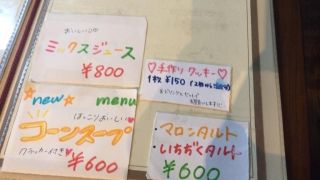 おいしいよ
ミックスジュース
¥800
♡手作りクッキー♡
1枚 ¥150
☆new☆ menu
ほっこりおいしい♡
コーンスープ
クラッカー付き♥
¥600
・マロンタルト
・いちぢくタルト
¥600